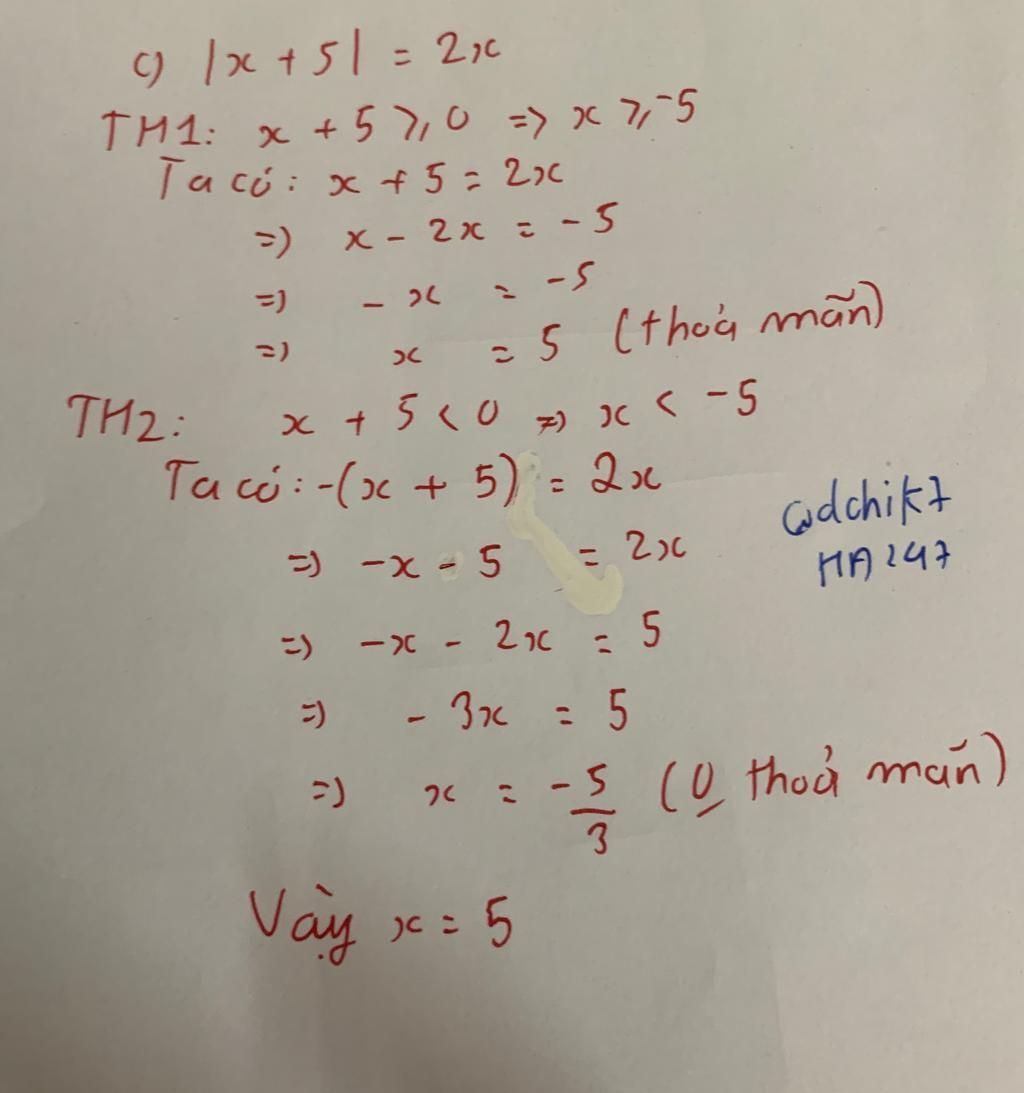 c) |x + 5| = 2x
TH1: x + 5 ⩾ 0 => x ⩾ -5
Ta có: x + 5 = 2x
=> x - 2x = -5
=> - x = -5
=> x = 5 (thoả mãn)
TH2: x + 5 < 0 => x < -5
Ta có: -(x + 5) = 2x
=> -x - 5 = 2x
=> -x - 2x = 5
=> - 3x = 5
=> x = -5/3 (0 thoả mãn)
Vậy x = 5
HA247